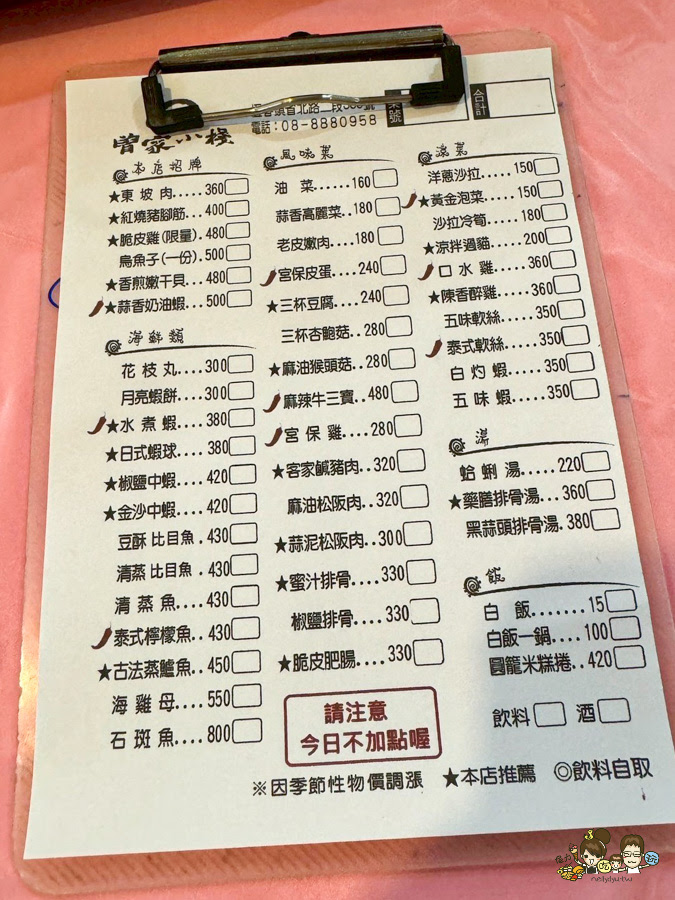 段388號
電話：08-8880958
桌號
合計
曾家小棧
本店招牌
★東坡肉.....360
★紅燒豬腳筋...400
★脆皮雞(限量).480
烏魚子(一份).500
★香煎嫩干貝...480
★蒜香奶油蝦...500
海鮮類
花枝丸....300
月亮蝦餅....300
★水煮蝦....380
★日式蝦球....380
★椒鹽中蝦....420
★金沙中蝦....420
豆酥比目魚.430
清蒸比目魚.430
清蒸魚....430
泰式檸檬魚..430
★古法蒸鱸魚..450
海雞母....550
石斑魚....800
風味菜
油菜......160
蒜香高麗菜..180
老皮嫩肉....180
宮保皮蛋....240
★三杯豆腐....240
三杯杏鮑菇..280
★麻油猴頭菇..280
麻辣牛三寶..480
宮保雞....280
★客家鹹豬肉..320
麻油松阪肉..320
★蒜泥松阪肉..300
★蜜汁排骨....330
椒鹽排骨....330
★脆皮肥腸....330
涼菜
洋蔥沙拉.....150
★黃金泡菜.....150
沙拉冷筍.....180
★涼拌過貓.....200
口水雞.....360
★陳香醉雞.....360
五味軟絲.....350
泰式軟絲.....350
白灼蝦.....350
五味蝦.....350
湯
蛤蜊湯.....220
★藥膳排骨湯...360
黑蒜頭排骨湯.380
飯
白飯.......15
白飯一鍋....100
圓籠米糕捲..420
飲料 酒
請注意
今日不加點喔
※因季節性物價調漲 ★本店推薦 ◎飲料自取
nellydyu.tw